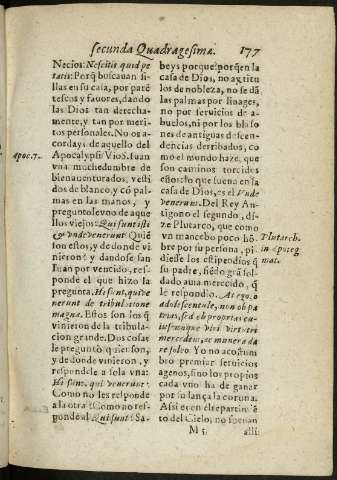 secunda Quadragesimæ 177
Necios: Nescitis quid pe
tatis: Porq̃ buscauan si
llas en su casa, por parẽ
tescos y fauores, dando
las Dios tan derecha-
mente, y tan por meri-
tos personales. No os a-
cordays de aquello del
Apocalypsi? Vio S. Iuan
vna muchedumbre de
bienauenturados, vesti
dos de blanco, y cõ pal-
mas en las manos, y
preguntole vno de aque
llos viejos: Qui sunt isti
& unde venerunt? Quiẽ
son estos, y de donde vi
nieron? y dandose san
Iuan por vencido, res-
ponde el que hizo la
pregunta. Hi sunt, qui ve
nerunt de tribulatione
magna. Estos son los q̃
vinieron de la tribula-
cion grande. Dos cosas
le preguntò quiẽ son,
y de donde vinieron, y
respondele a sola vna:
Hi sunt, qui venerunt:
Como no les responde
a la otra? Como no res-
ponde al Qui sunt? Sa-
apoc. 7.
beys porque? porq̃ en la
casa de Dios, no ay titu
los de nobleza, no se dã
las palmas por linages,
no por seruicios de a-
buelos, ni por los blaso
nes de antiguas descen-
dencias derribados, co
mo el mundo haze, que
son caminos torcidos
estos: lo que suena en la
casa de Dios, es el Vnde
venerunt. Del Rey An-
tigono el segundo, di-
ze Plutarco, que como
vn mancebo poco hõ-
bre por su persona, pi-
diesse los estipendios q̃
su padre, siẽdo grã sol-
dado auia merecido, q̃
le respondio. At ego, o
adolescentule, non ob pa
trias, sed ob proprias cu-
iuscunque viri virtutes
mercedem, ac munera da
re soleo. Yo no acostum
bro premiar seruicios
agenos, sino los propios
cada vno ha de ganar
por su lança la corona.
Assi es en el repartimiẽ
to del Cielo, no suenan
Plutarch.
in apoteg
mat.
M 5 alli